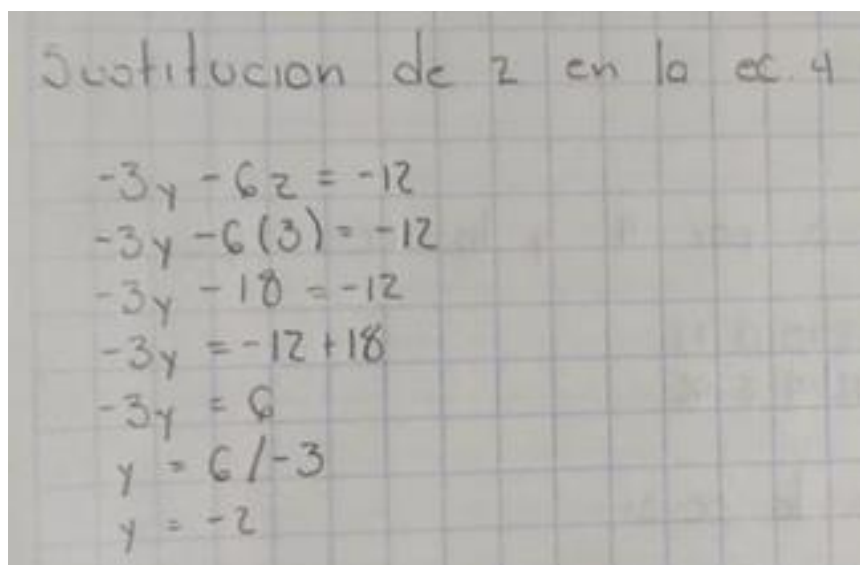 Sustitucion de z en la ec. 4
-3y - 6z = -12
-3y - 6(3) = -12
-3y - 18 = -12
-3y = -12 + 18
-3y = 6
y = 6/-3
y = -2